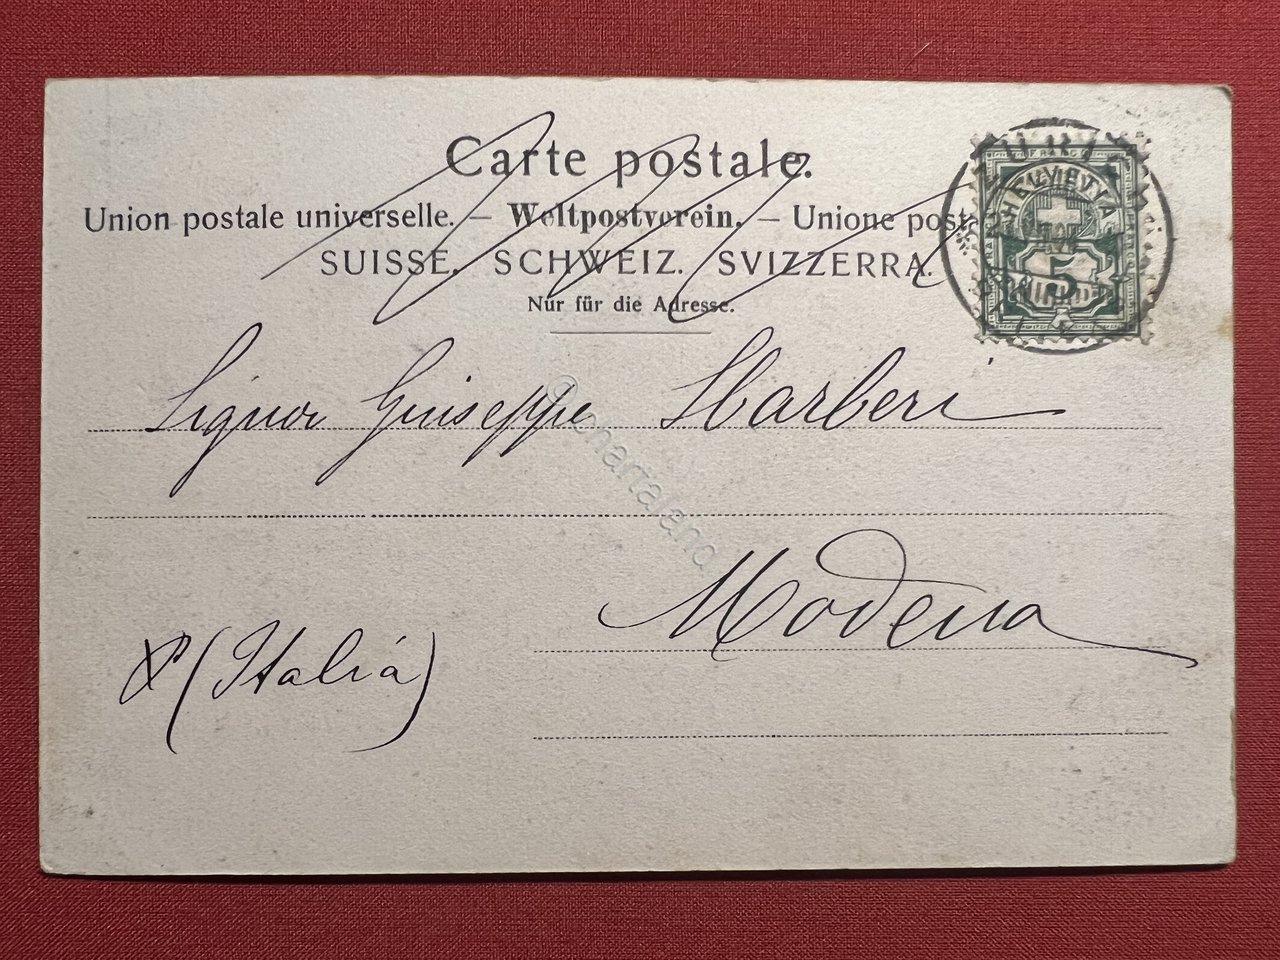 Carte postale.
Union postale universelle. — Weltpostverein. — Unione posta
SUISSE. SCHWEIZ. SVIZZERRA.
Nur für die Adresse.
HELVETIA
5
Signor Giuseppe
©chartaland
Modena
(Italia)